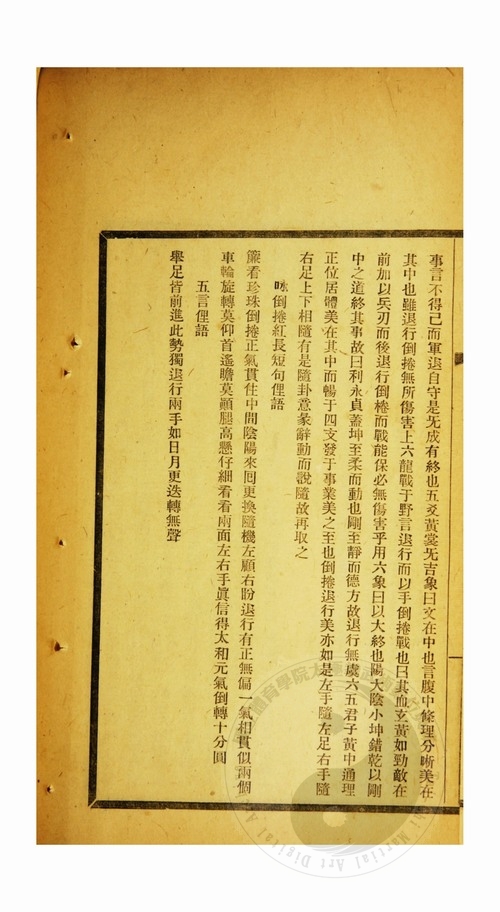 事言不得已而軍退自守是旡成有終也五爻黃裳旡吉象曰文在中也言腹中條理分晰美在
其中也雖退行倒捲無所傷害上六龍戰于野言退行而以手倒捲戰也曰其血玄黃如勁敵在
前加以兵刃而後退行倒捲而戰能保必無傷害乎用六象曰以大終也陽大陰小坤錯乾以剛
中之道終其事故曰利永貞蓋坤至柔而動也剛至靜而德方故退行無虞六五君子黃中通理
正位居體美在其中而暢于四支發于事業美之至也倒捲退行美亦如是左手隨左足右手隨
右足上下相隨有是隨卦意彖辭動而說隨故再取之
咏倒捲紅長短句俚語
簾看珍珠倒捲正氣貫住中間陰陽來囘更換隨機左顧右盼退行有正無偏一氣相貫似兩個
車輪旋轉莫仰首遙瞻莫顚腿高懸仔細看看兩面左右手眞信得太和元氣倒轉十分圓
五言俚語
舉足皆前進此勢獨退行兩手如日月更迭轉無聲